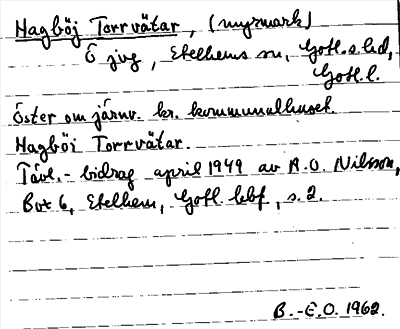 Hagböj Torrvätar, (myrmark)
Ö jvg, Etelhems sn, Gotl. s. hd,
Gotl. l.
Öster om järnv. kr. kommunalhuset.
Hagböj Torrvätar.
Tävl.- bidrag april 1949 av R.O. Nilsson,
Box 6, Etelhem, Gotl. hbf, s. 2.
B.-E.O. 1962.